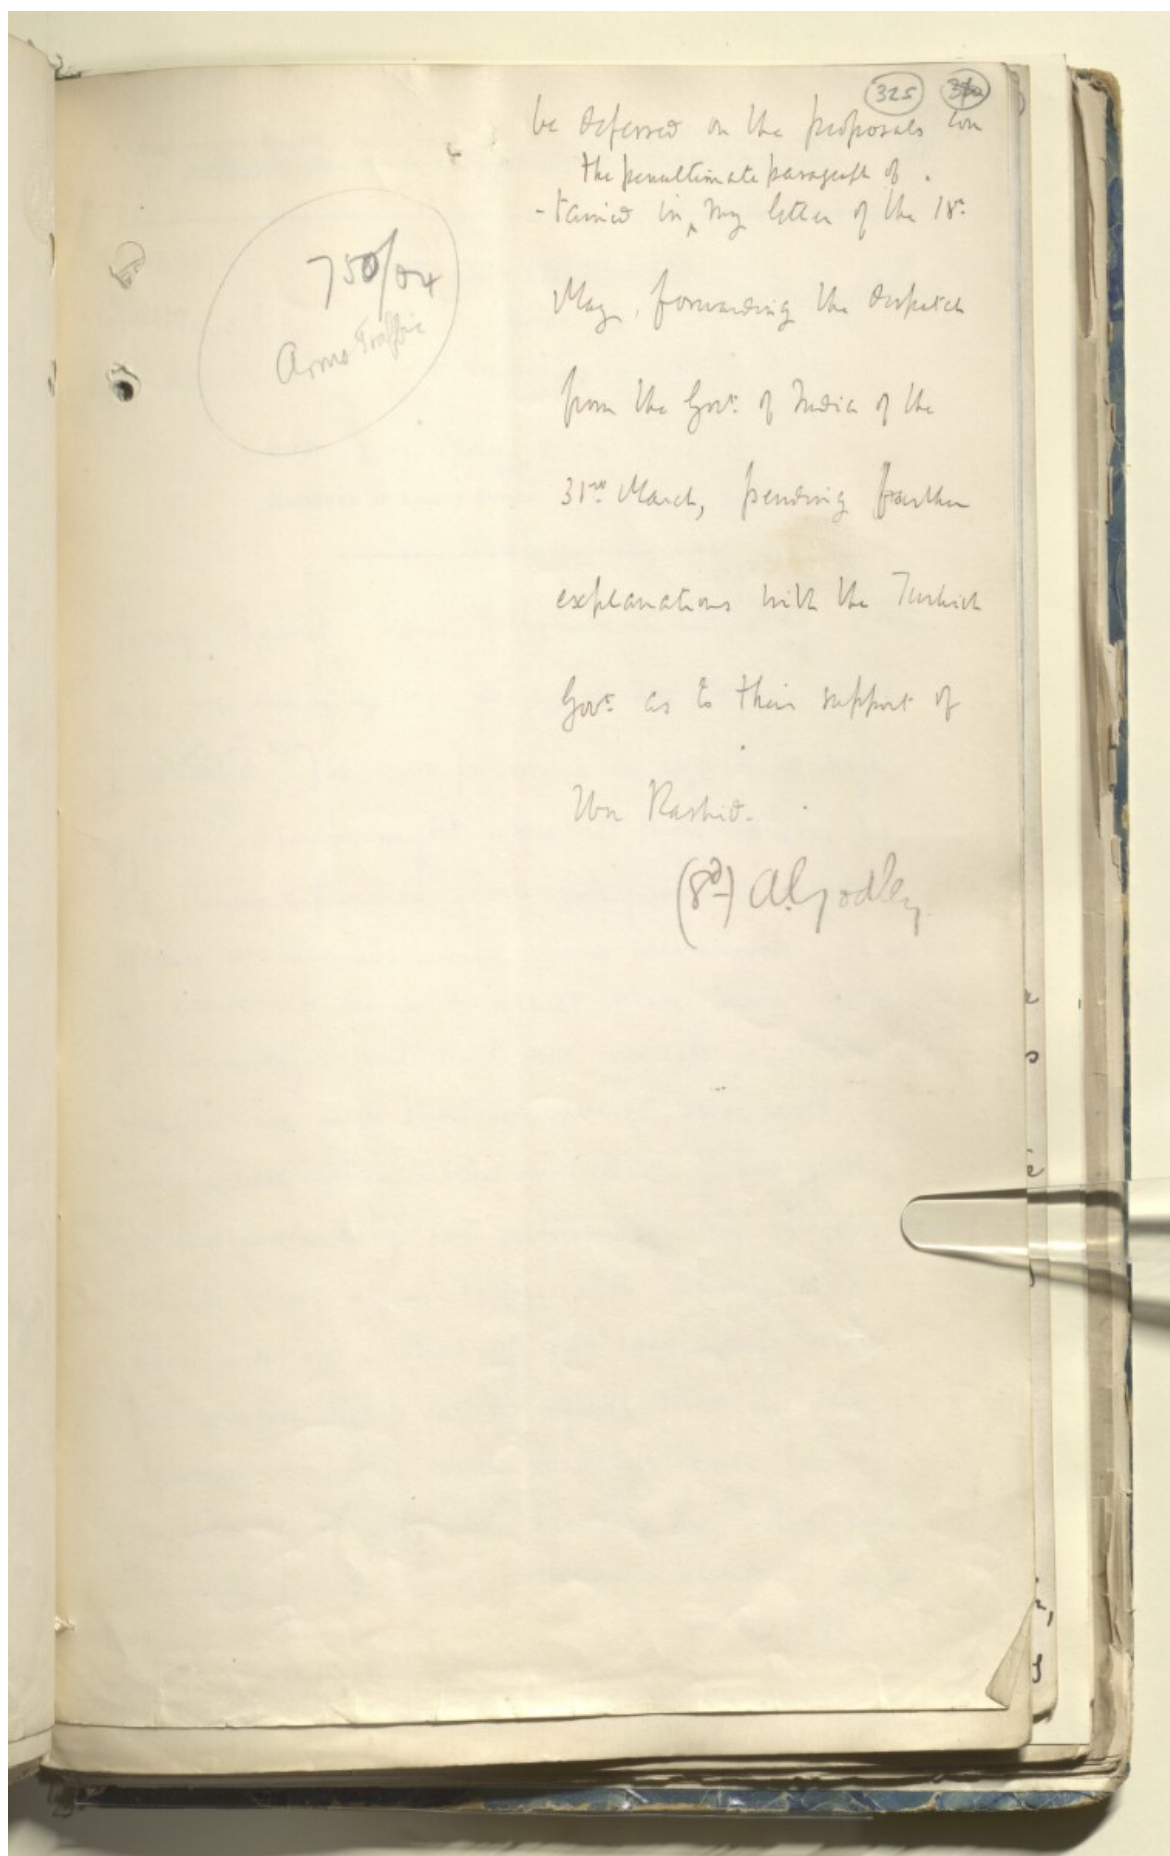 325
be deferred on the proposals con
the penultimate paragraph of
-tained in ^ my letter of the 18th
May, forwarding the despatch
from the Govt. of India of the
31st March, pending further
explanations with the Turkish
Govt. as to their support of
Ibn Rashid.
(Sd) A. Godley
750/04
Arms Traffic